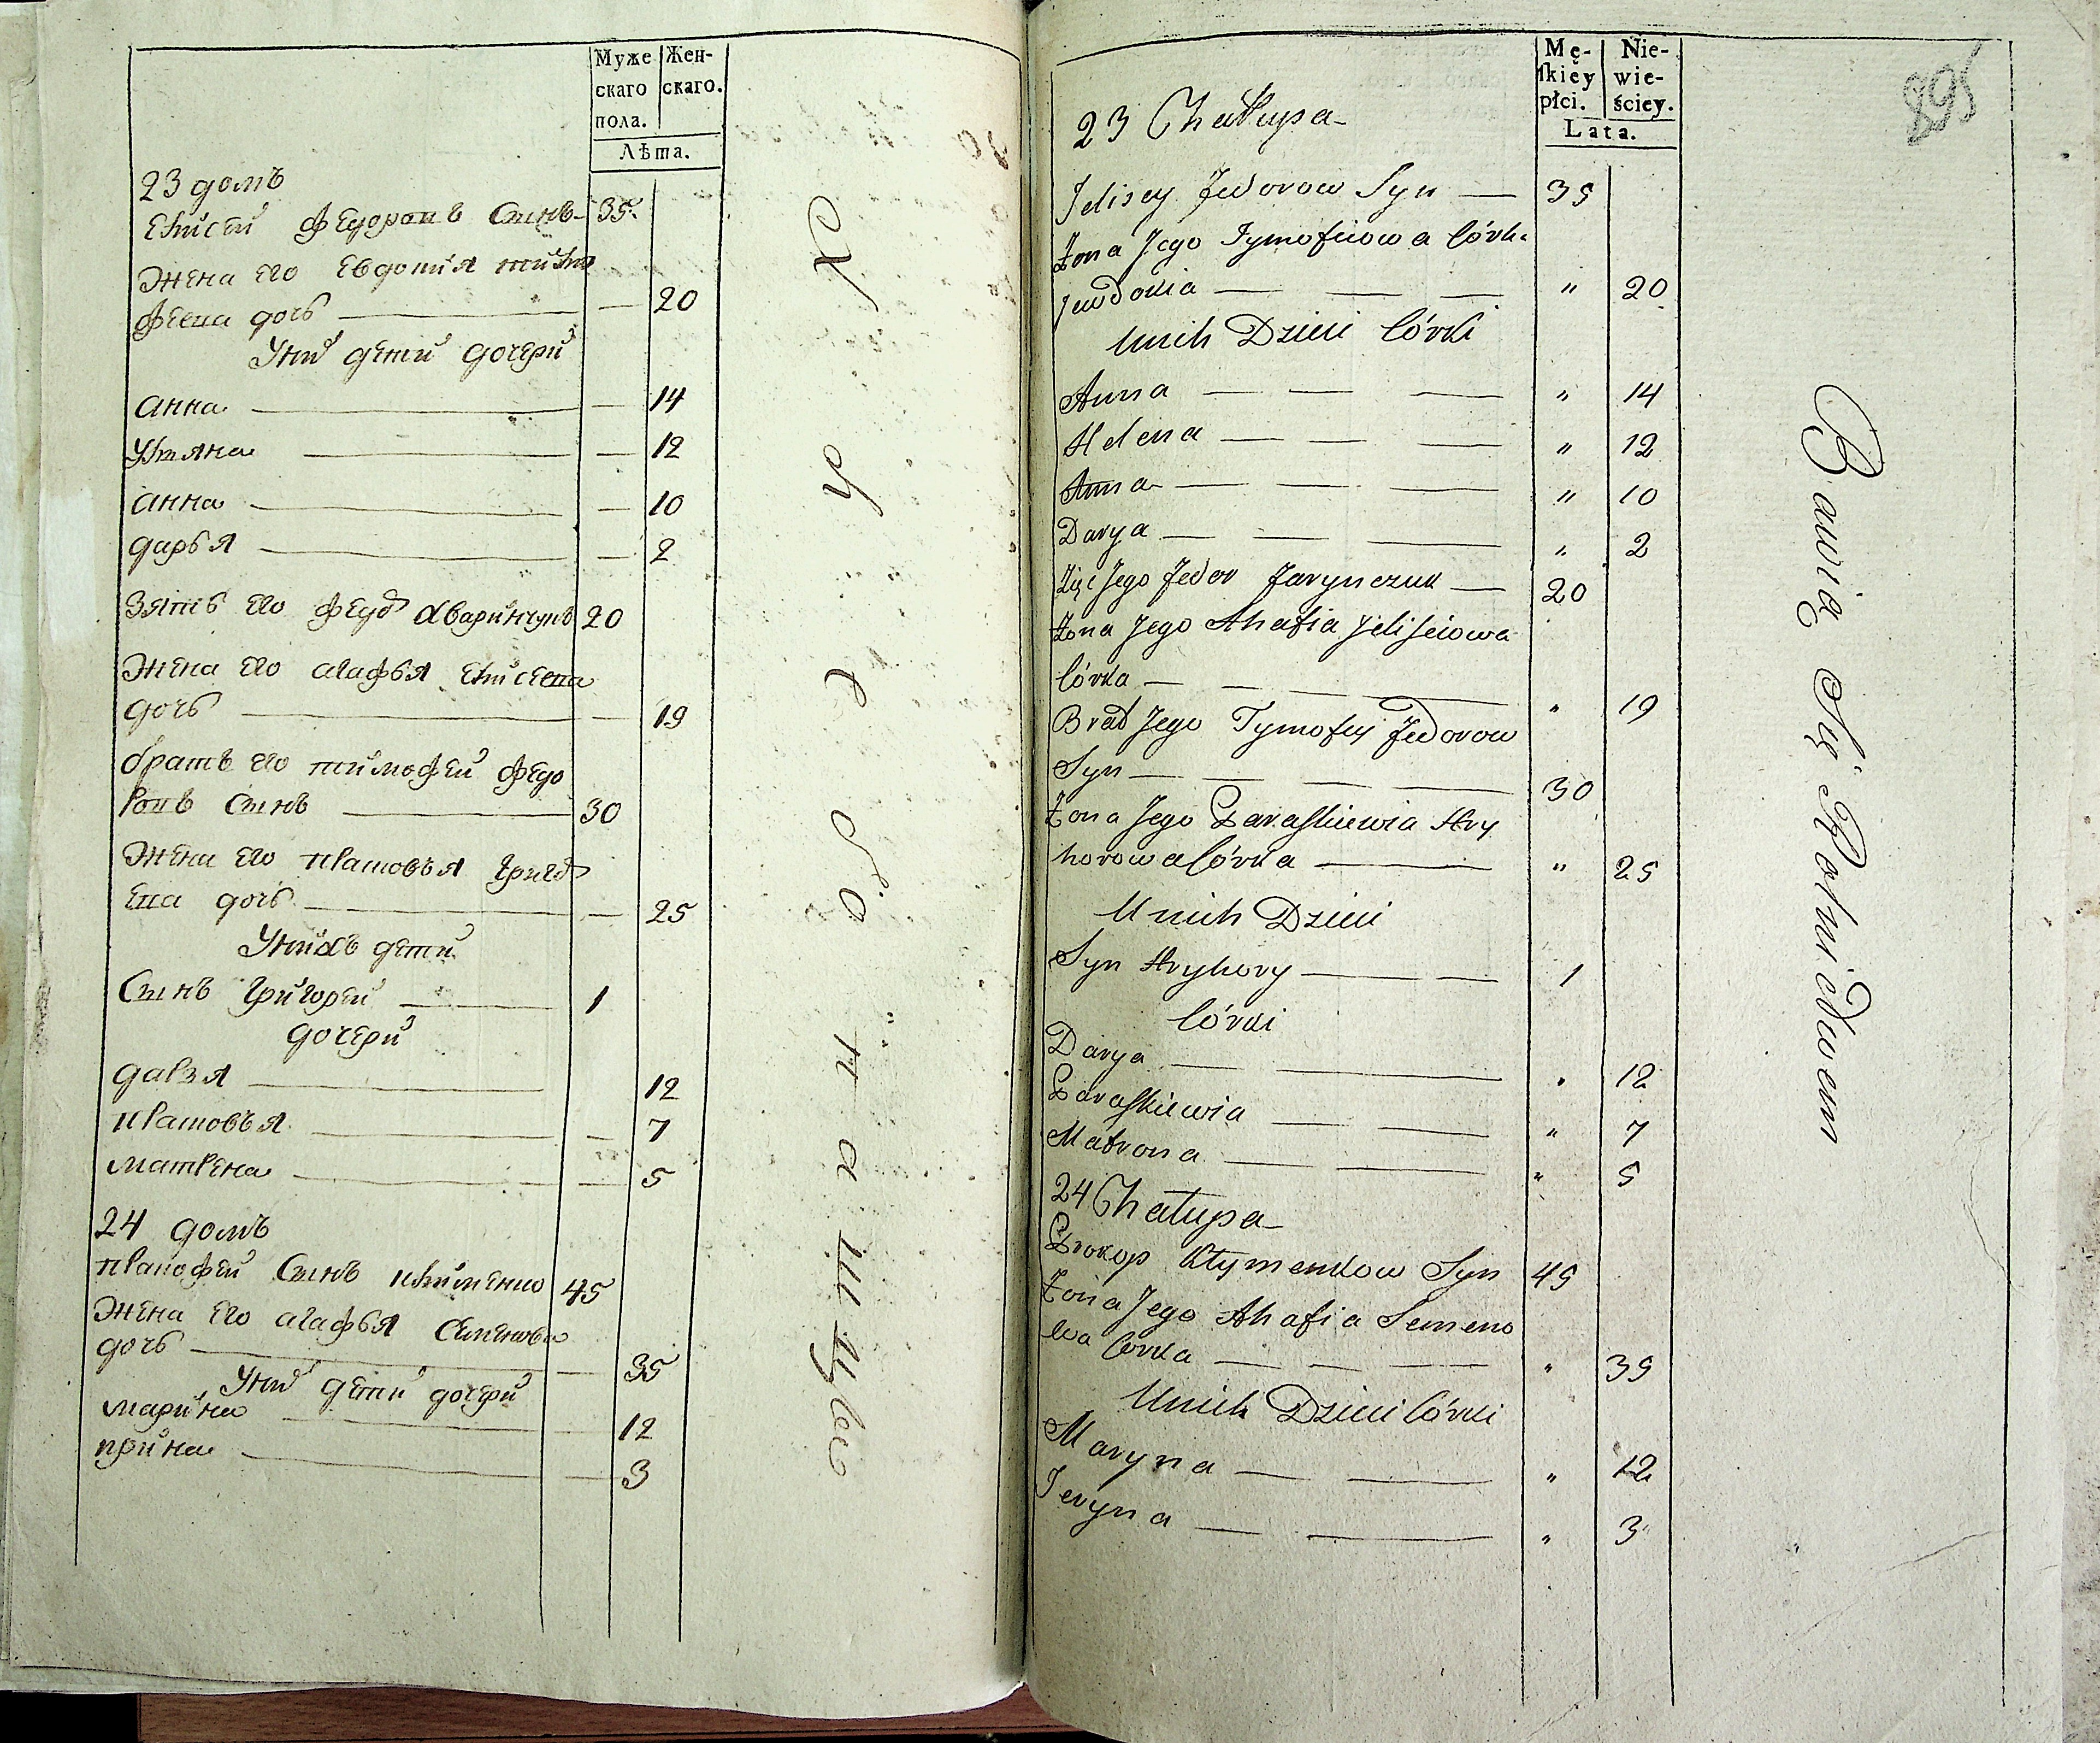 Муже
скаго
пола.
Жен-
скаго.
Лѣта.
23 домъ
Елисей Федоровъ Сынъ 35
Жена его Евдокия тимо
феева дочь — 20
У них дети дочери
анна — 14
Ульяна — 12
анна — 10
дарья — 2
Зять его Федор 20
Жена его агафья Елисеева
дочь — 19
братъ его тимофей Федо
ровъ Сынъ 30
Жена его Григор
ева дочь — 25
У нихъ дети
Сынъ Григорей 1
дочери
12
7
матрена — 5
24 домъ
Сынъ 45
Жена его агафья Семенова
дочь — 35
У них дети дочери
марина — 12
3
Mę-
ſkiey
płci.
Nie-
wie-
ściey.
Lata.
895
23 Chałupa
Jelisey Fedorow Syn — 35
Żona Jego Tymofieiowa Córka
Jewdokia — — — " 20
U nich Dzieci Córki
Anna — — — " 14
Helena — — — " 12
Anna — — — " 10
Darya — — — " 2
Zięć Jego Fedor Jarynczuk — 20
Żona Jego Ahafia Jelisieiowa
Córka — — — " 19
Brat Jego Tymofiey Fedorow
Syn — — — 30
Żona Jego Paraſkiewia Hry
horowa Córka — " 25
U nich Dzieci
Syn Hryhory — — 1
Córki
Darya — — " 12
Paraſkiewia — — " 7
Matrona — — " 5
24 Chałupa
Prokop Kłymenkow Syn 45
Żona Jego Ahafia Semeno
wa Córka — — — " 35
U nich Dzieci Córki
Maryna — — " 12
Jeryna — — " 3
Bawią Się Rolnictwem